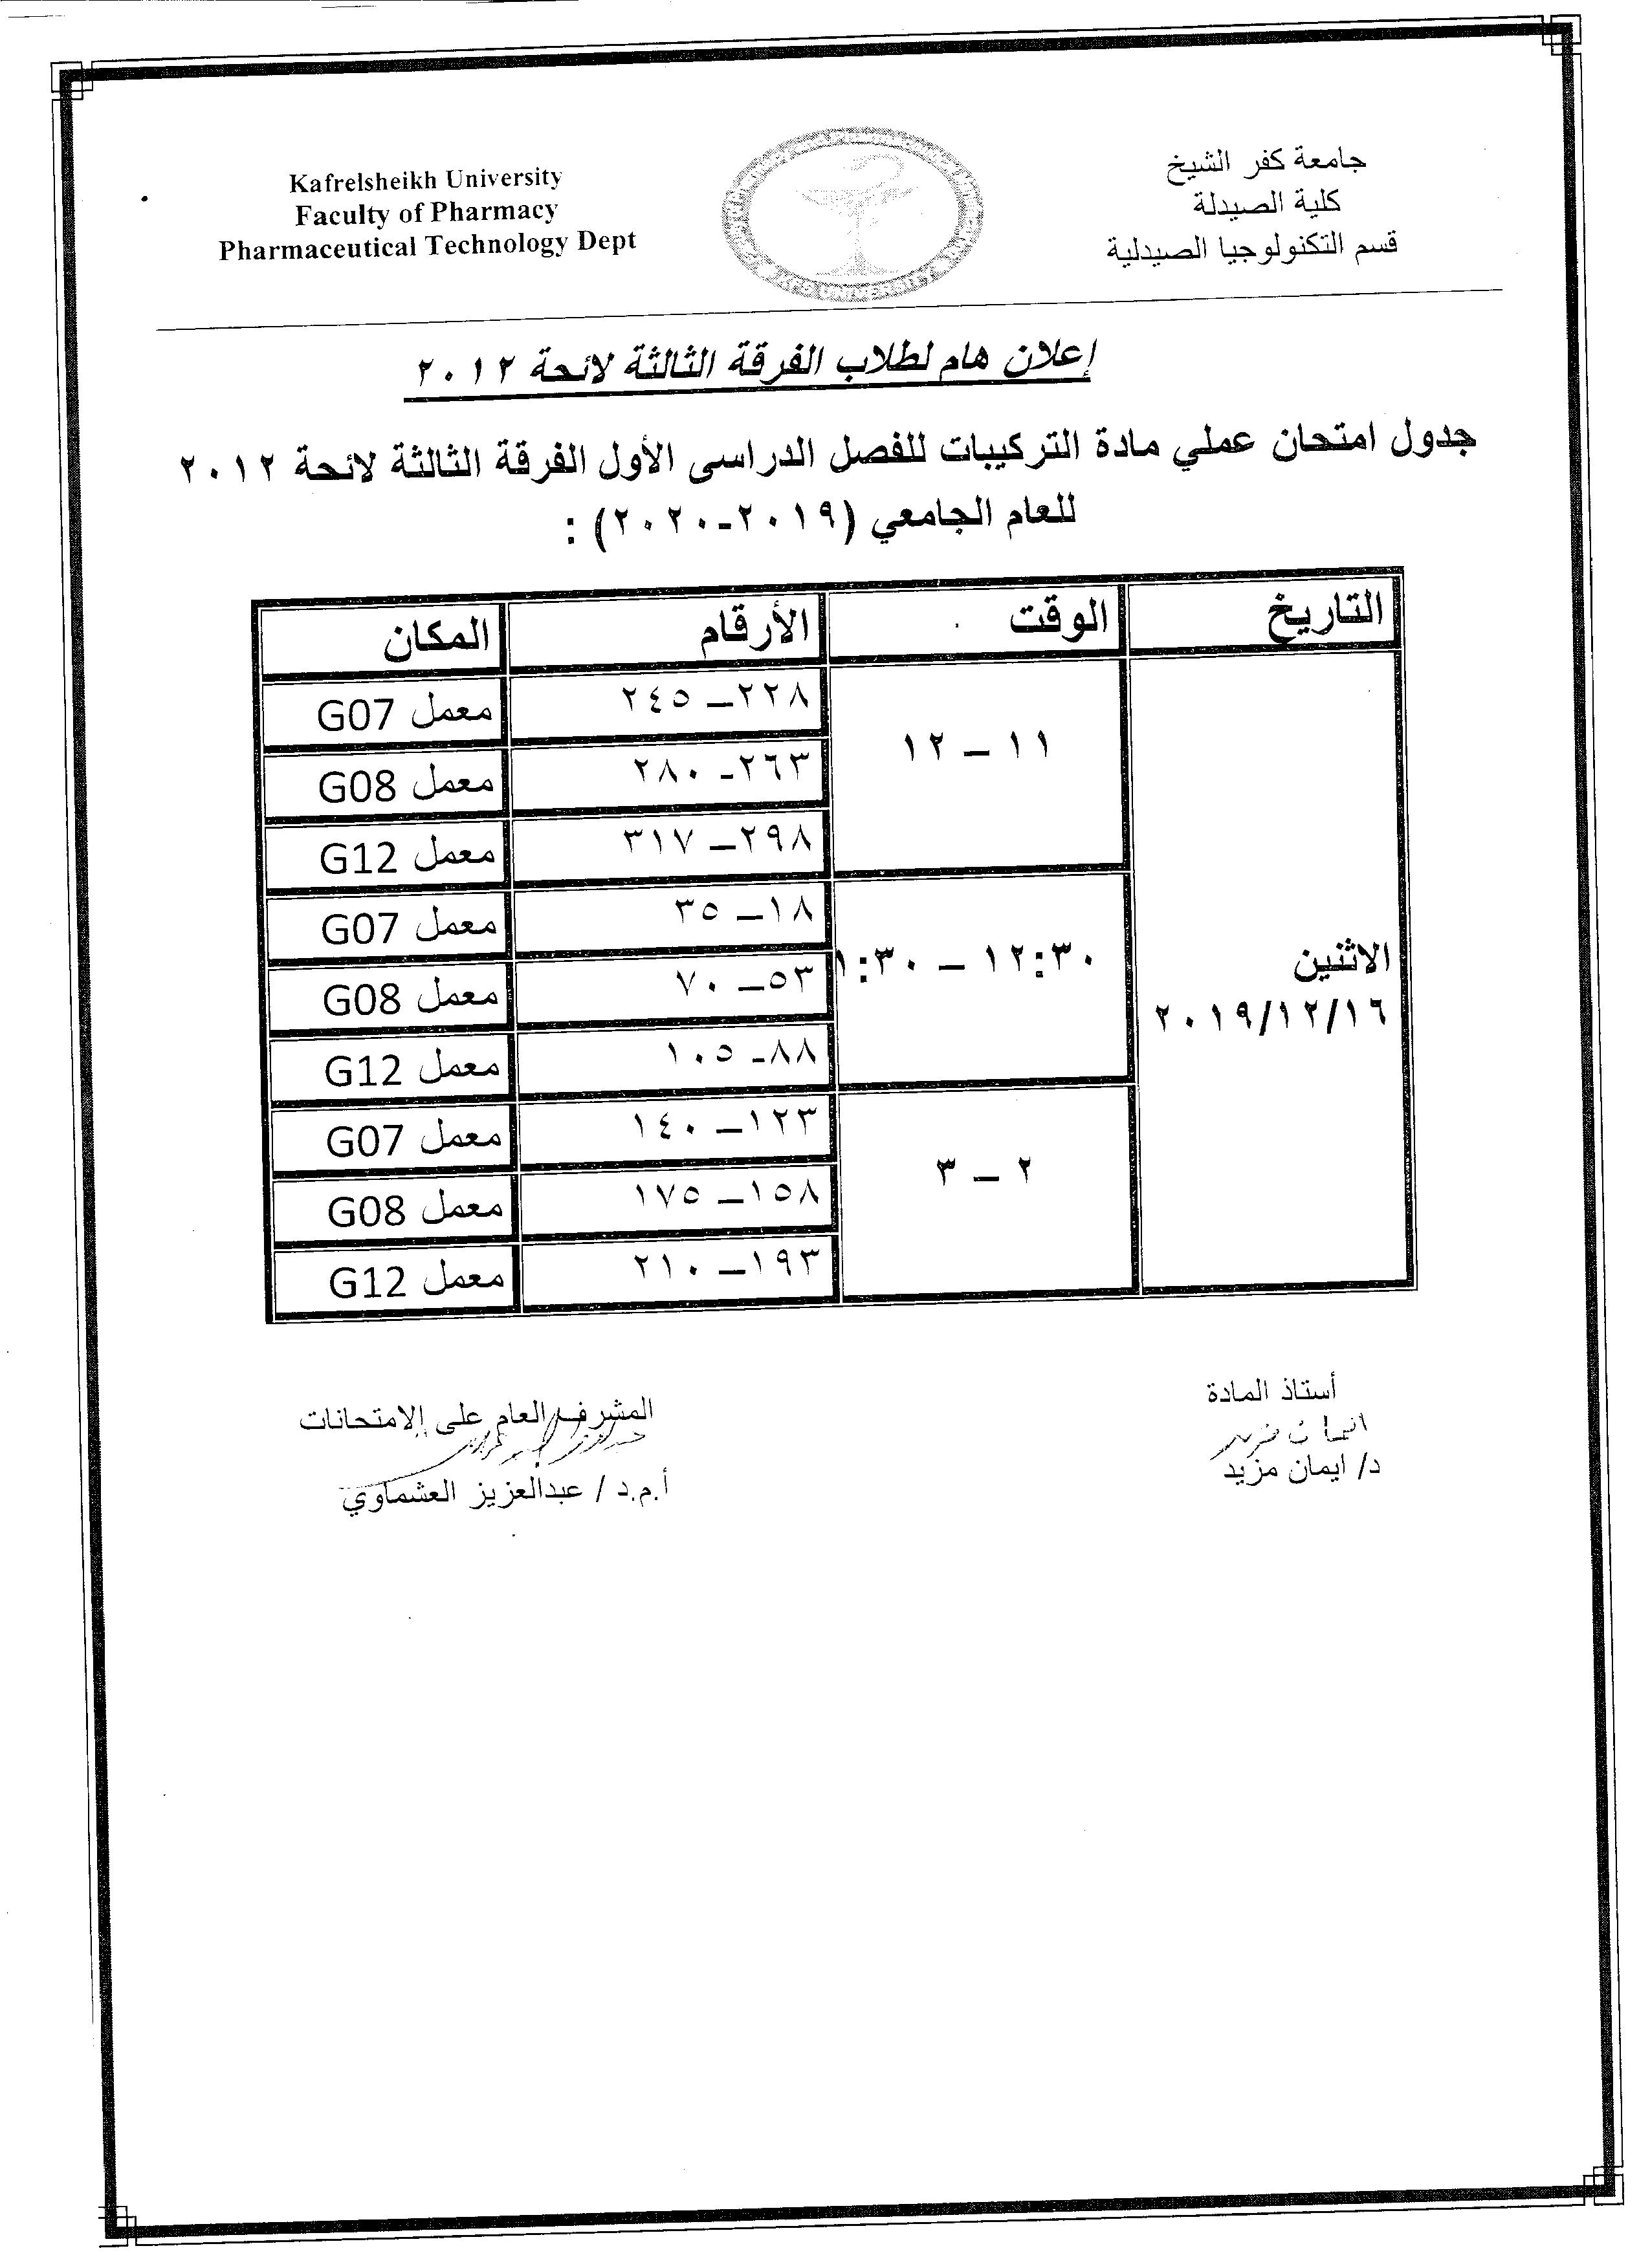 Kafrelsheikh University
Faculty of Pharmacy
Pharmaceutical Technology Dept
جامعة كفر الشيخ
كلية الصيدلة
قسم التكنولوجيا الصيدلية
KFS UNIVERSITY
إعلان هام لطلاب الفرقة الثالثة لائحة ٢٠١٢
جدول امتحان عملي مادة التركيبات للفصل الدراسى الأول الفرقة الثالثة لائحة ٢٠١٢
للعام الجامعي (٢٠١٩-٢٠٢٠) :
التاريخ الوقت الأرقام المكان
الاثنين
٢٠١٩/١٢/١٦
١١ – ١٢
٢٢٨– ٢٤٥ معمل G07
٢٦٣- ٢٨٠ معمل G08
٢٩٨– ٣١٧ معمل G12
١٢:٣٠ – ١:٣٠
١٨– ٣٥ معمل G07
٥٣– ٧٠ معمل G08
٨٨- ١٠٥ معمل G12
٢ – ٣
١٢٣– ١٤٠ معمل G07
١٥٨– ١٧٥ معمل G08
١٩٣– ٢١٠ معمل G12
أستاذ المادة
د/ ايمان مزيد
المشرف العام على الامتحانات
أ.م.د / عبدالعزيز العشماوي